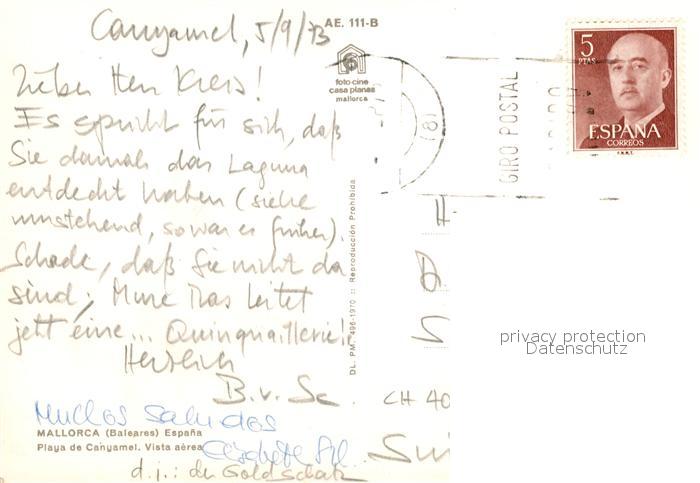 AE. 111-B
Canyamel, 5/9/73
foto-cine
casa planas
mallorca
Lieber Herr Kreis!
Es spricht für sich, daß
Sie damals das Laguna
entdeckt haben (siehe
umstehend, so war es früher).
Schade, daß Sie nicht da
sind,
leitet
jetzt eine... Quinquaillerie!
Herzlich
B. v. Sc.
Muchos saludos
MALLORCA (Baleares) España
Playa de Canyamel. Vista aérea
d.j.: der Goldschatz
DL. PM. 496-1970 :: Reproducción Prohibida
GIRO POSTAL
5
PTAS
ESPAÑA
CORREOS
F.N.M.T.
H
CH 40
privacy protection
Datenschutz